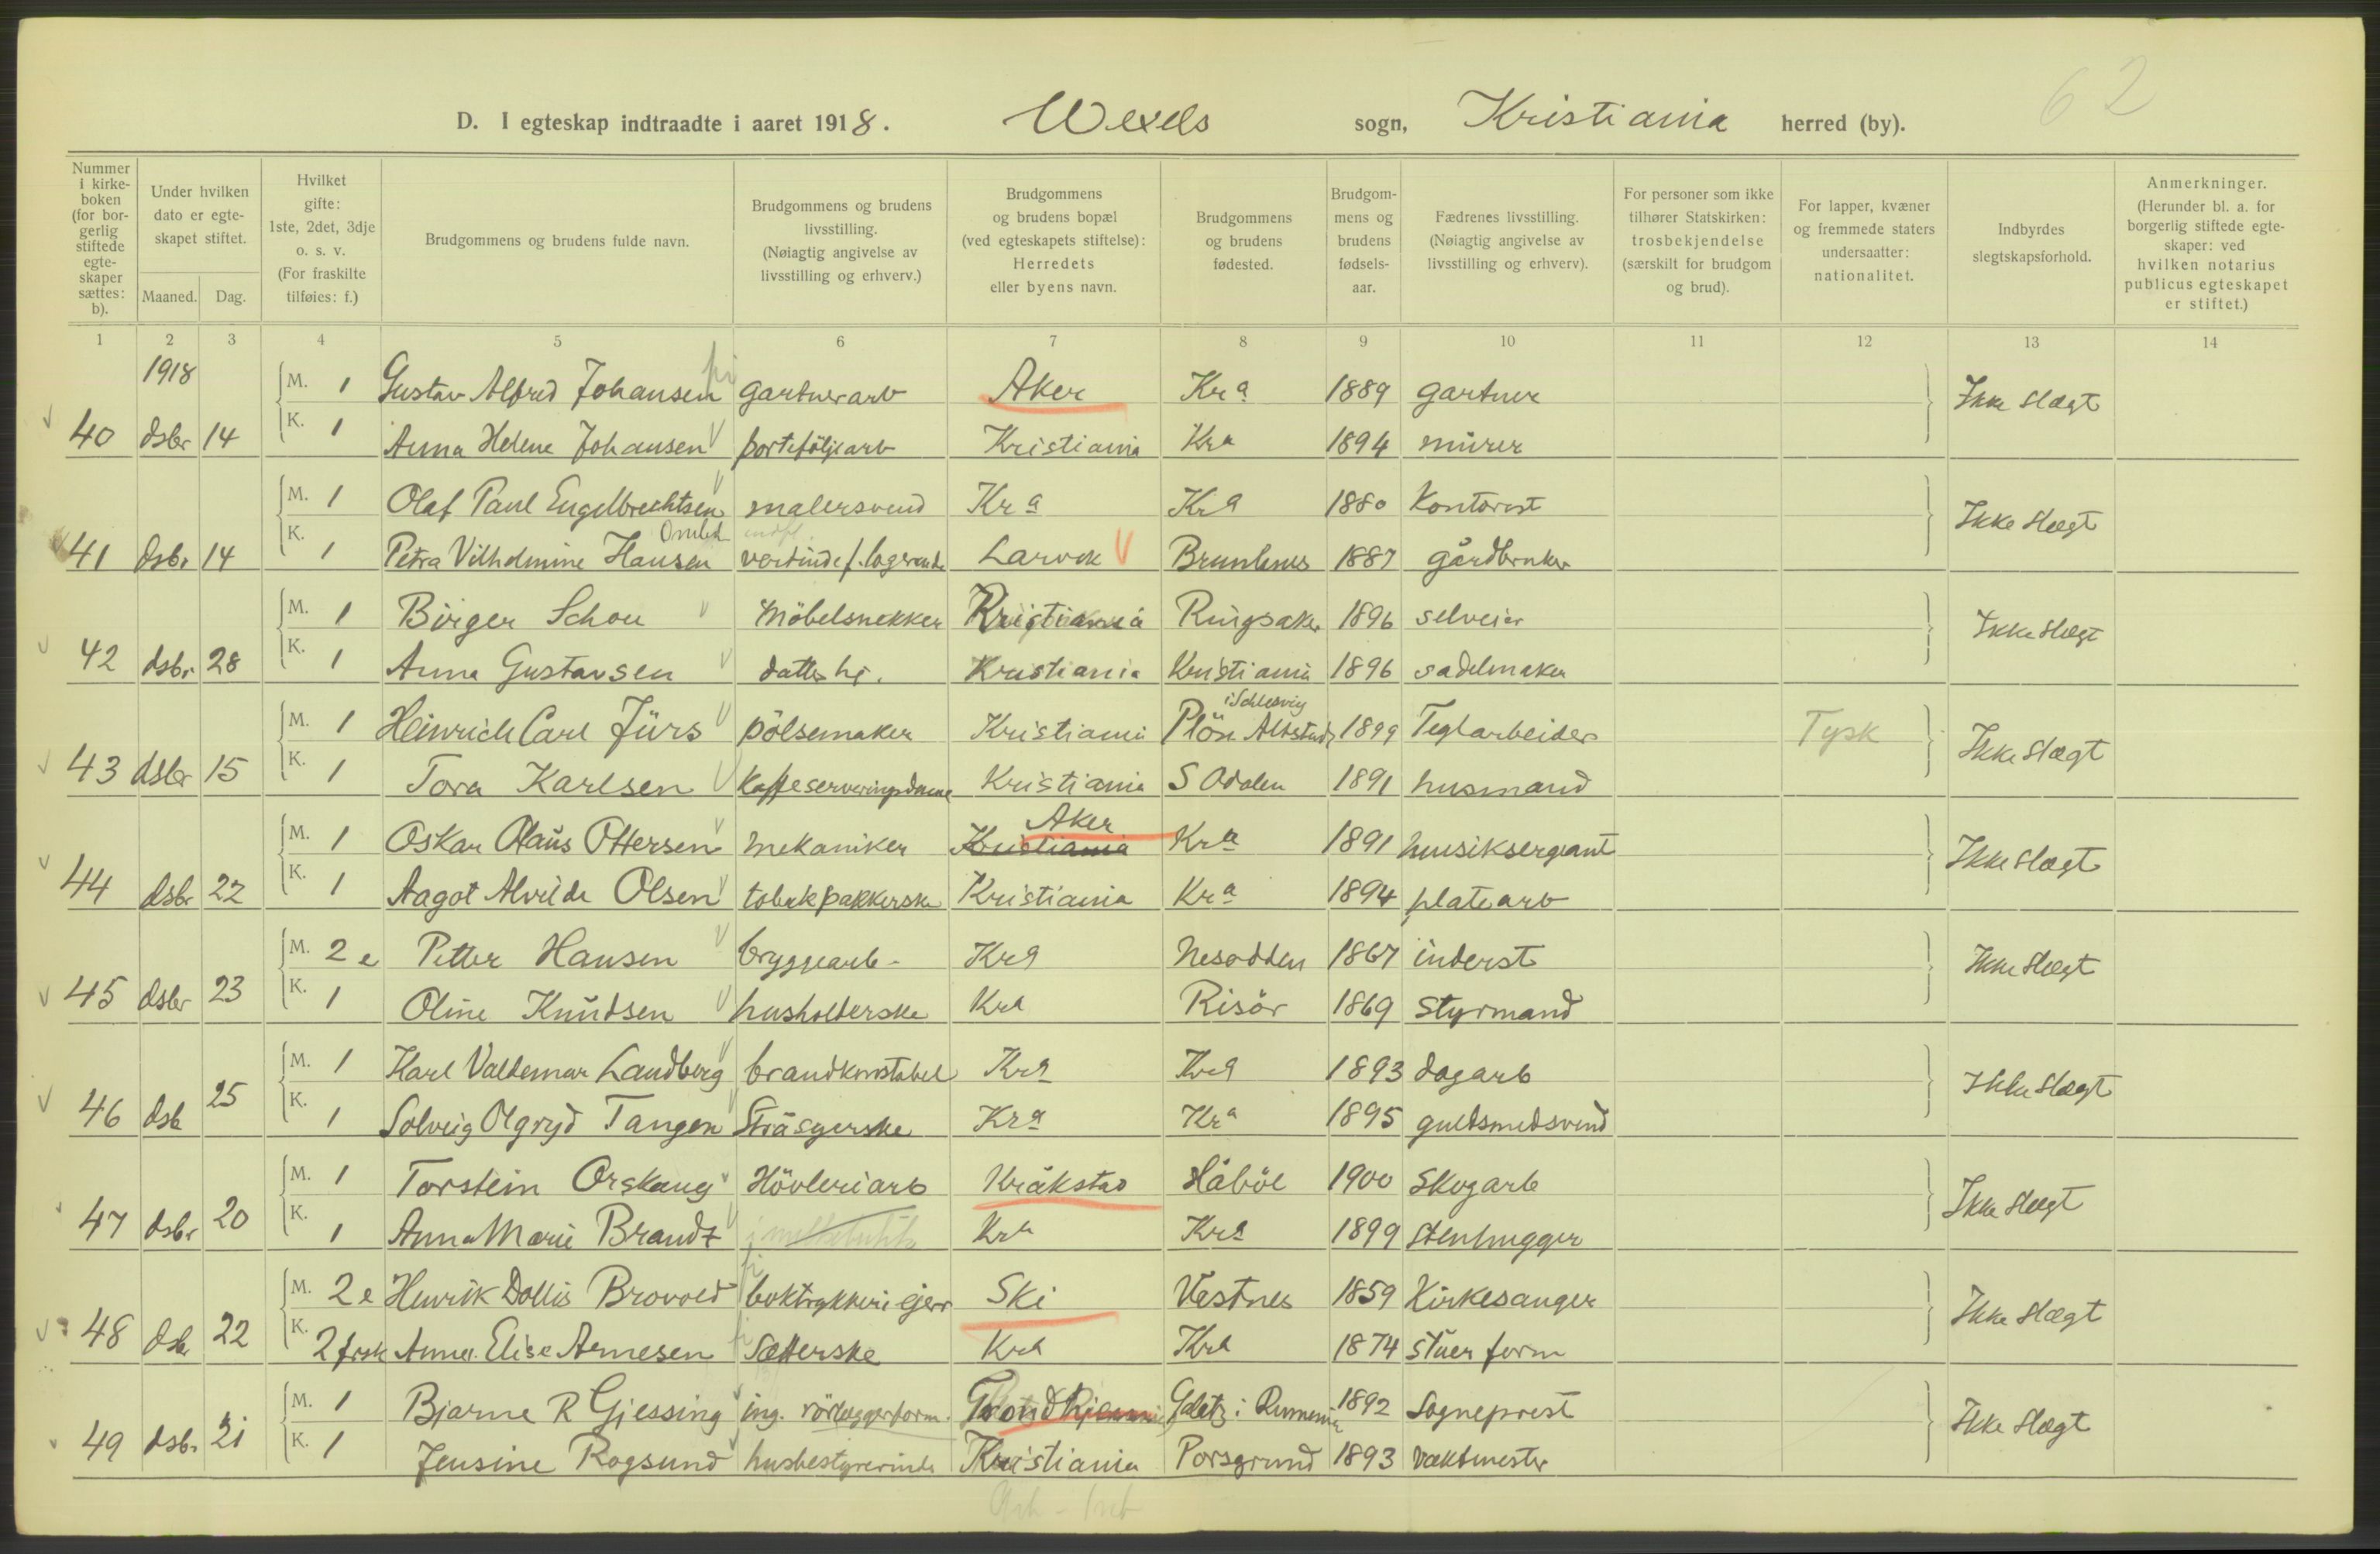 62
D. I egteskap indtraadte i aaret 1918. Wexels sogn, Kristiania herred (by).
Nummer i kirkeboken (for borgerlig stiftede egteskaper sættes: b).
Under hvilken dato er egteskapet stiftet.
Maaned. Dag.
Hvilket gifte: 1ste, 2det, 3dje o. s. v. (For fraskilte tilføies: f.)
Brudgommens og brudens fulde navn.
Brudgommens og brudens livsstilling. (Nøiagtig angivelse av livsstilling og erhverv.)
Brudgommens og brudens bopæl (ved egteskapets stiftelse): Herredets eller byens navn.
Brudgommens og brudens fødested.
Brudgommens og brudens fødselsaar.
Fædrenes livsstilling. (Nøiagtig angivelse av livsstilling og erhverv).
For personer som ikke tilhører Statskirken: trosbekjendelse (særskilt for brudgom og brud).
For lapper, kvæner og fremmede staters undersaatter: nationalitet.
Indbyrdes slegtskapsforhold.
Anmerkninger. (Herunder bl. a. for borgerlig stiftede egteskaper: ved hvilken notarius publicus egteskapet er stiftet.)
1 2 3 4 5 6 7 8 9 10 11 12 13 14
1918
M. 1 Gustav Alfred Johansen gartnerarb Aker Kra 1889 gartner Ikke slægt
40 dsbr 14 K. 1 Anna Helene Johansen porteföljearb Kristiania Kra 1894 murer
M. 1 Olaf Paul Engelbrechtsen malersvend Kra Kra 1880 Kontorist Ikke slægt
41 dsbr 14 K. 1 Petra Vilhelmine Hansen Larvik Brunlanes 1887 gårdbruker
M. 1 Birger Schou Möbelsnekker Kristiania Ringsaker 1896 selveier Ikke slægt
42 dsbr 28 K. 1 Anna Gustavsen datter hj. Kristiania Kristiania 1896 sadelmaker
M. 1 Heinrich Carl Jürs pölsemaker Kristiania Plön Altstadt i Schlesvig 1899 Teglarbeider Tysk Ikke slægt
43 dsbr 15 K. 1 Tora Karlsen Kaffeserveringsdame Kristiania S Odalen 1891 husmand
M. 1 Oskar Olaus Ottersen mekaniker Kristiania Aker Kra 1891 musiksergeant Ikke slægt
44 dsbr 22 K. 1 Aagot Alvilde Olsen tobakpakkerske Kristiania Kra 1894 platearb
M. 2 e Petter Hansen bryggearb. Kra Nesodden 1867 inderst Ikke slægt
45 dsbr 23 K. 1 Oline Knudsen husholderske Kra Risör 1869 Styrmand
M. 1 Karl Valdemar Landberg brandkonstabel Kra Kra 1893 dagarb Ikke slægt
46 dsb 25 K. 1 Solveig Olgryd Tangen Stråsyerske Kra Kra 1895 guldsmedsvend
M. 1 Torstein Orskaug Hövleriarb Kråkstad Håböl 1900 Skogarb Ikke slægt
47 dsbr 20 K. 1 Anna Marie Brandt Kra Kra 1899 Stenhugger
M. 2 e Henrik Dollis Brovold boktrykkeri ejer Ski Vestnes 1859 Kirkesanger Ikke slægt
48 dsb 22 K. 2 frsk Anna Elise Arnesen Sætterske Kra Kra 1874 stuerform
M. 1 Bjarne R Gjessing ing. rörleggerform. Trondhjem Galatz i Rumenia 1892 Sogneprest Ikke slægt
49 dsbr 21 K. 1 Jensine Rogsund husbestyrerinde Kristiania Porsgrund 1893 Vaktmester